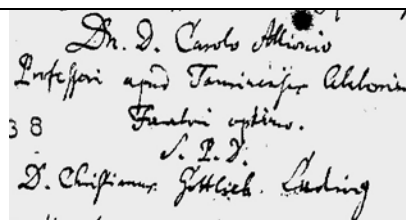 Dn. D. Carolo Allionio
Professori apud Taurinenses
Fautori optimo.
38
S. P. D.
D. Christianus Gottlieb Ludwig